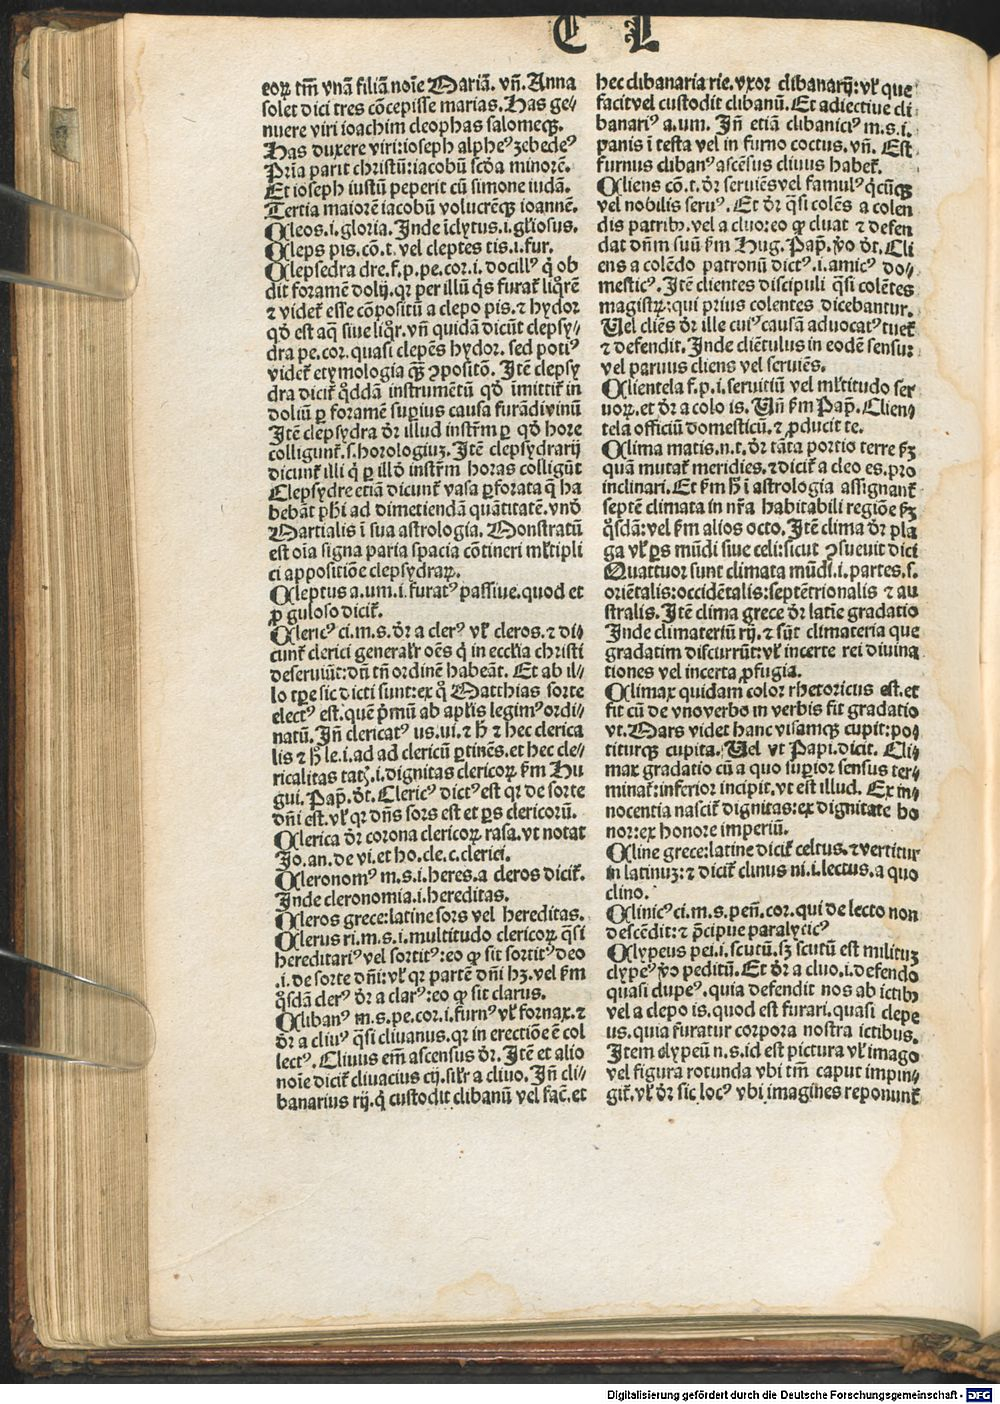 C L
eoꝝ tm̄ vnā filiā noīe Mariā. vn̄. Anna
solet dici tres cōcepisse marias. Has ge⸗
nuere viri ioachim cleophas salomeqꝫ.
Has duxere viri: ioseph alpheꝰ zebedeꝰ
Pria parit christū: iacobū scd̄a minorē.
Et ioseph iustū peperit cū simone iudā.
Tertia maiorē iacobū volucrēqꝫ ioannē.
Cleos .i. gloria. Inde īclytus .i. gl̄iosus.
Cleps pis. cō. t. vel cleptes tis .i. fur.
Clepsedra dre. f. p. pe. cor. i. docillꝰ q̇ ob
dit foramē dolij. qr per illū q̄s furat̄ liq̄rē
⁊ videt̄ esse cōpositū a clepo pis. ⁊ hydor
qd̄ est aq̄ siue liq̊r. vn̄ quidā dicūt clepsy⸗
dra pe. cor. quasi clepēs hydor. sed potiꝰ
videt̄ etymologia qꝫ ꝯpositō. Itē clepsy
dra dicit̄ q̊ddā instrumētū qd̄ īmittit̄ in
doliū ꝑ foramē suꝑius causa furādi vinū
Itē clepsydra dr̄ illud instrm̄ ꝑ qd̄ hore
colligunt̄. s. horologiuꝫ. Itē clepsydrarij
dicunt̄ illi q̇ ꝑ illd̄ instrm̄ horas colligūt
Clepsydre etiā dicunt̄ vasa ꝑforata q̄ ha
bebāt ph̄i ad dimetiendā quātitatē. vnd̄
Martialis ī sua astrologia. Monstratū
est oīa signa paria spacia cōtineri ml̄tipli
ci appositiōe clepsydraꝝ.
Cleptus a. um. i. furatꝰ passiue. quod et
ꝓ guloso dicit̄.
Clericꝰ ci. m. s. dr̄ a clerꝰ vl̄ cleros. ⁊ di⸗
cunt̄ clerici general̄r oēs q̇ in ecclīa christi
deseruiūt: dū tn̄ ordinē habeāt. Et ab il⸗
lo tꝑe sic dicti sunt: ex q̊ Matthias sorte
electꝰ est. quē pͥmū ab apl̄is legimꝰ ordi⸗
natū. In̄ clericatꝰ us. ui. ⁊ h̄ ⁊ hec clerica
lis ⁊ h̊ le .i. ad ad clericū ꝑtinēs. et hec cle⸗
ricalitas tatꝭ .i. dignitas clericoꝝ fm̄ Hu
gui. Pap̄. dt̄. Clericꝰ dictꝰ est qr de sorte
dn̄i est. vl̄ qr dn̄s sors est et ꝑs clericorū.
Clerica dr̄ corona clericoꝝ rasa. vt notat
Jo. an. de vi. et ho. cle. c. clerici.
Cleronomꝰ m. s. i. heres. a cleros dicit̄.
Inde cleronomia .i. hereditas.
Cleros grece: latine sors vel hereditas.
Clerus ri. m. s. i. multitudo clericoꝝ q̄si
hereditariꝰ vel sortitꝰ: eo ꝙ sit sortitꝰ deo
.i. de sorte dn̄i: vl̄ qr partē dn̄i hꝫ. vel fm̄
q̊sdā clerꝰ dr̄ a clarꝰ: eo ꝙ sit clarus.
Clibanꝰ m. s. pe. cor. i. furnꝰ vl̄ fornax. ⁊
dr̄ a cliuꝰ q̄si cliuanus. qr in erectiōe ē col
lectꝰ. Cliuus em̄ ascensus dr̄. Itē et alio
noīe dicit̄ cliuacius cij. sil̄r a cliuo. In̄ cli⸗
banarius rij. q̇ custodit clibanū vel fac̄. et
hec clibanaria rie. vxor clibanarij: vl̄ que
facit vel custodit clibanū. Et adiectiue cli
banariꝰ a. um. In̄ etiā clibaniciꝰ m. s. i.
panis ī testa vel in furno coctus. vn̄. Est
furnus clibanꝰ ascēsus cliuus habet̄.
Cliens cō. t. dr̄ seruiēs vel famulꝰ q̇cūqꝫ
vel nobilis seruꝰ. Et dr̄ q̄si colēs a colen
dis patribꝫ. vel a cluo: eo ꝙ cluat ⁊ defen
dat dn̄m suū fm̄ Hug. Pap̄. ꝟo dt̄. Cli
ens a colēdo patronū dictꝰ .i. amicꝰ do⸗
mesticꝰ. Itē clientes discipuli q̄si colētes
magistꝝ: qui prius colentes dicebantur.
Uel cliēs dr̄ ille cuiꝰ causā aduocatꝰ tuet̄
⁊ defendit. Inde cliētulus in eodē sensu:
vel paruus cliens vel seruiēs.
Clientela f. p. i. seruitiū vel ml̄titudo ser
uoꝝ. et dr̄ a colo is. Un̄ fm̄ Pap̄. Clien⸗
tela officiū domesticū. ⁊ ꝓducit te.
Clima matis. n. t. dr̄ tāta portio terre fꝫ
quā mutat̄ meridies. ⁊ dicit̄ a cleo es. pro
inclinari. Et fm̄ h̄ ī astrologia assignant̄
septē climata in nr̄a habitabili regiōe fꝫ
q̊sdā: vel fm̄ alios octo. Itē clima dr̄ pla
ga vl̄ ꝑs mūdi siue celi: sicut ꝯsueuit dici
Quattuor sunt climata mūdi .i. partes. s.
oriētalis: occidētalis: septētrionalis ⁊ au
stralis. Itē clima grece dr̄ latīe gradatio
Inde climateriū rij. ⁊ sūt climateria que
gradatim discurrūt: vl̄ incerte rei diuina
tiones vel incerta ꝓfugia.
Climax quidam color rhetoricus est. et
fit cū de vno verbo in verbis fit gradatio
vt. Mars videt hanc visamqꝫ cupit: po⸗
titurqꝫ cupita. Uel vt Papi. dicit. Cli⸗
max gradatio cū a quo suꝑior sensus ter⸗
minat̄: inferior incipit. vt est illud. Ex in⸗
nocentia nascit̄ dignitas: ex dignitate ho
nor: ex honore imperiū.
Cline grece: latine dicit̄ celtus. ⁊ vertitur
in latinuꝫ: ⁊ dicit̄ clinus ni .i. lectus. a quo
clino.
Clinicꝰ ci. m. s. pen̄. cor. qui de lecto non
descēdit: ⁊ p̄cipue paralyticꝰ
Clypeus pei .i. scutū. sꝫ scutū est militūꝫ
clypeꝰ ꝟo peditū. Et dr̄ a cluo .i. defendo
quasi clupeꝰ. quia defendit nos ab ictibꝫ
vel a clepo is. quod est furari. quasi clepe
us. quia furatur corpora nostra ictibus.
Item clypeū n. s. id est pictura vl̄ imago
vel figura rotunda vbi tm̄ caput impin⸗
git̄. vl̄ dr̄ sic locꝰ vbi imagines reponunt̄
Digitalisierung gefördert durch die Deutsche Forschungsgemeinschaft - DFG